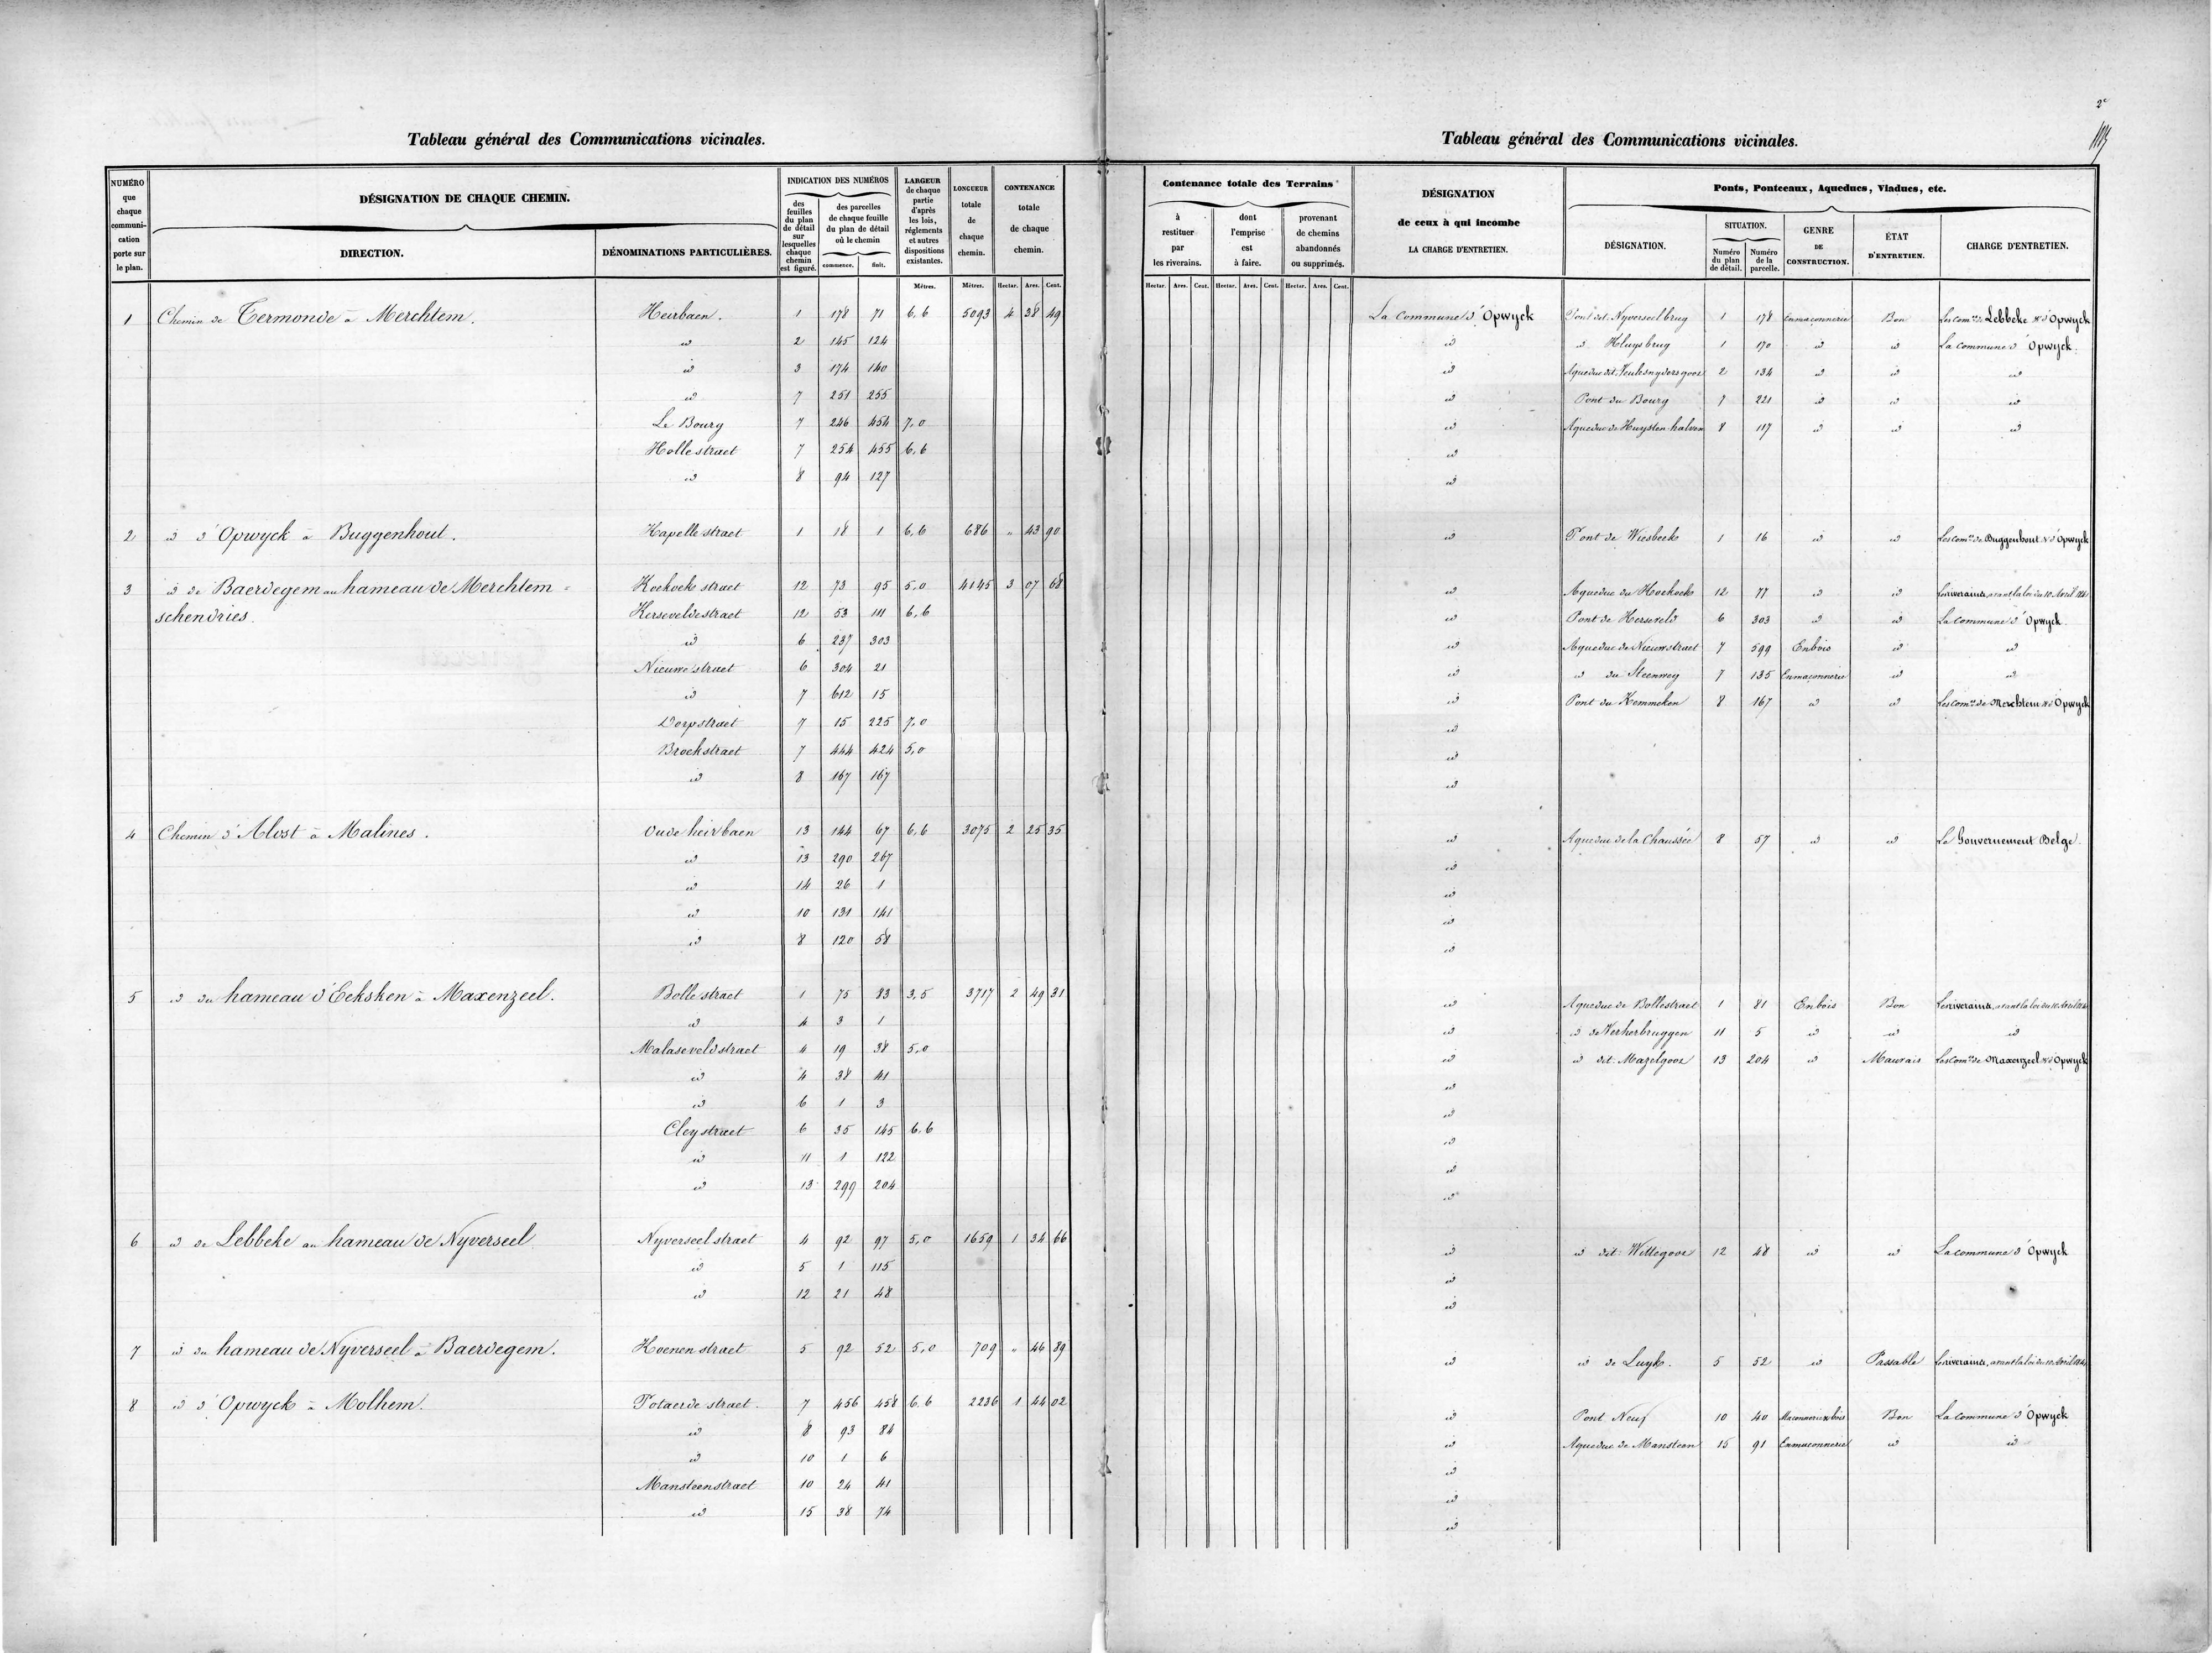 2e
Tableau général des Communications vicinales.
NUMÉRO que chaque communication porte sur le plan.
DÉSIGNATION DE CHAQUE CHEMIN.
DIRECTION.
DÉNOMINATIONS PARTICULIÈRES.
INDICATION DES NUMÉROS
des feuilles du plan de détail sur lesquelles chaque chemin est figuré.
des parcelles de chaque feuille du plan de détail où le chemin
commence. finit.
LARGEUR de chaque partie d'après les lois, réglements et autres dispositions existantes.
LONGUEUR totale de chaque chemin.
CONTENANCE totale de chaque chemin.
Mètres. Mètres. Hectar. Ares. Cent.
1 Chemin de Termonde à Merchtem. Heirbaen. 1 178 71 6,6 5093 4 38 49
id 2 145 124
id 3 174 140
id 7 251 255
Le Bourg 7 246 454 7,0
Hollestraet 7 254 455 6,6
id 8 94 127
2 id d'Opwyck à Buggenhout. Kapellestraet 1 18 1 6,6 686 " 43 90
3 id de Baerdegem au hameau de Merchtem- Koekoekstraet 12 73 95 5,0 4145 3 07 68
schendries. Kerseveldestraet 12 53 111 6,6
id 6 237 303
Nieuwestraet 6 304 21
id 7 612 15
Dorpstraet 7 15 225 7,0
Broekstraet 7 444 424 5,0
id 8 167 167
4 Chemin d'Alost à Malines. Oude heirbaen 13 144 67 6,6 3075 2 25 35
id 13 290 267
id 14 26 1
id 10 131 141
id 8 120 58
5 id du hameau d'Eeksken à Maxenzeel. Bollestraet 1 75 83 3,5 3717 2 49 31
id 4 3 1
Malaseveldstraet 4 19 38 5,0
id 4 38 41
id 6 1 3
Cleystraet 6 35 145 6,6
id 11 1 122
id 13 299 204
6 id de Lebbeke au hameau de Nyverseel Nyverseelstraet 4 92 97 5,0 1659 1 34 66
id 5 1 115
id 12 21 48
7 id du hameau de Nyverseel à Baerdegem. Koenenstraet 5 92 52 5,0 709 " 46 39
8 id d'Opwyck à Molhem. Potaerdestraet. 7 456 458 6,6 2236 1 44 02
id 8 93 84
id 10 1 6
Mansteenstraet 10 24 41
id 15 38 74
Tableau général des Communications vicinales.
Contenance totale des Terrains
à restituer par les riverains.
dont l'emprise est à faire.
provenant de chemins abandonnés ou supprimés.
DÉSIGNATION de ceux à qui incombe LA CHARGE D'ENTRETIEN.
Ponts, Pontceaux, Aqueducs, Viaducs, etc.
DÉSIGNATION.
SITUATION.
Numéro du plan de détail.
Numéro de la parcelle.
GENRE DE CONSTRUCTION.
ÉTAT D'ENTRETIEN.
CHARGE D'ENTRETIEN.
Hectar. Ares. Cent. Hectar. Ares. Cent. Hectar. Ares. Cent.
La Commune d'Opwyck Pont dit Nyverseelbrug 1 178 En maçonnerie Bon Les comnes de Lebbeke & d'Opwyck
id id Kluysbrug 1 170 id id La commune d'Opwyck.
id Aqueduc dit 2 134 id id id
id Pont du Bourg 7 221 id id id
id Aqueduc de Huysten halven 8 117 id id id
id
id
id Pont de Wiesbeek 1 16 id id Les comnes de Buggenhout & d'Opwyck
id Aqueduc du Koekoek 12 77 id id Les riverains, avant la loi du 10 Avril 1841
id Pont de Kerseveld 6 303 id id La commune d'Opwyck
id Aqueduc de Nieuwstraet 7 599 En bois id id
id id du Steenweg 7 135 En maçonnerie id id
id Pont du Kemmeken 8 167 id id Les comnes de Merchtem & d'Opwyck
id
id
id
id Aqueduc de la Chaussée 8 57 id id Le Gouvernement Belge.
id
id
id
id
id Aqueduc de Bollestraet 1 81 En bois Bon Les riverains, avant la loi du 10 Avril 1841
id id de Verherbruggen 11 5 id id id
id id dit Mazelgoos 13 204 id Mauvais Les comnes de Maxenzeel & d'Opwyck
id
id
id
id
id
id id dit Wittegoos 12 48 id id La commune d'Opwyck
id
id
id id de Luyk. 5 52 id Passable Les riverains, avant la loi du 10 Avril 1841
id Pont Neuf 10 40 Maçonnerie & bois Bon La commune d'Opwyck
id Aqueduc de Mansteen 15 91 En maçonnerie id id
id
id
id